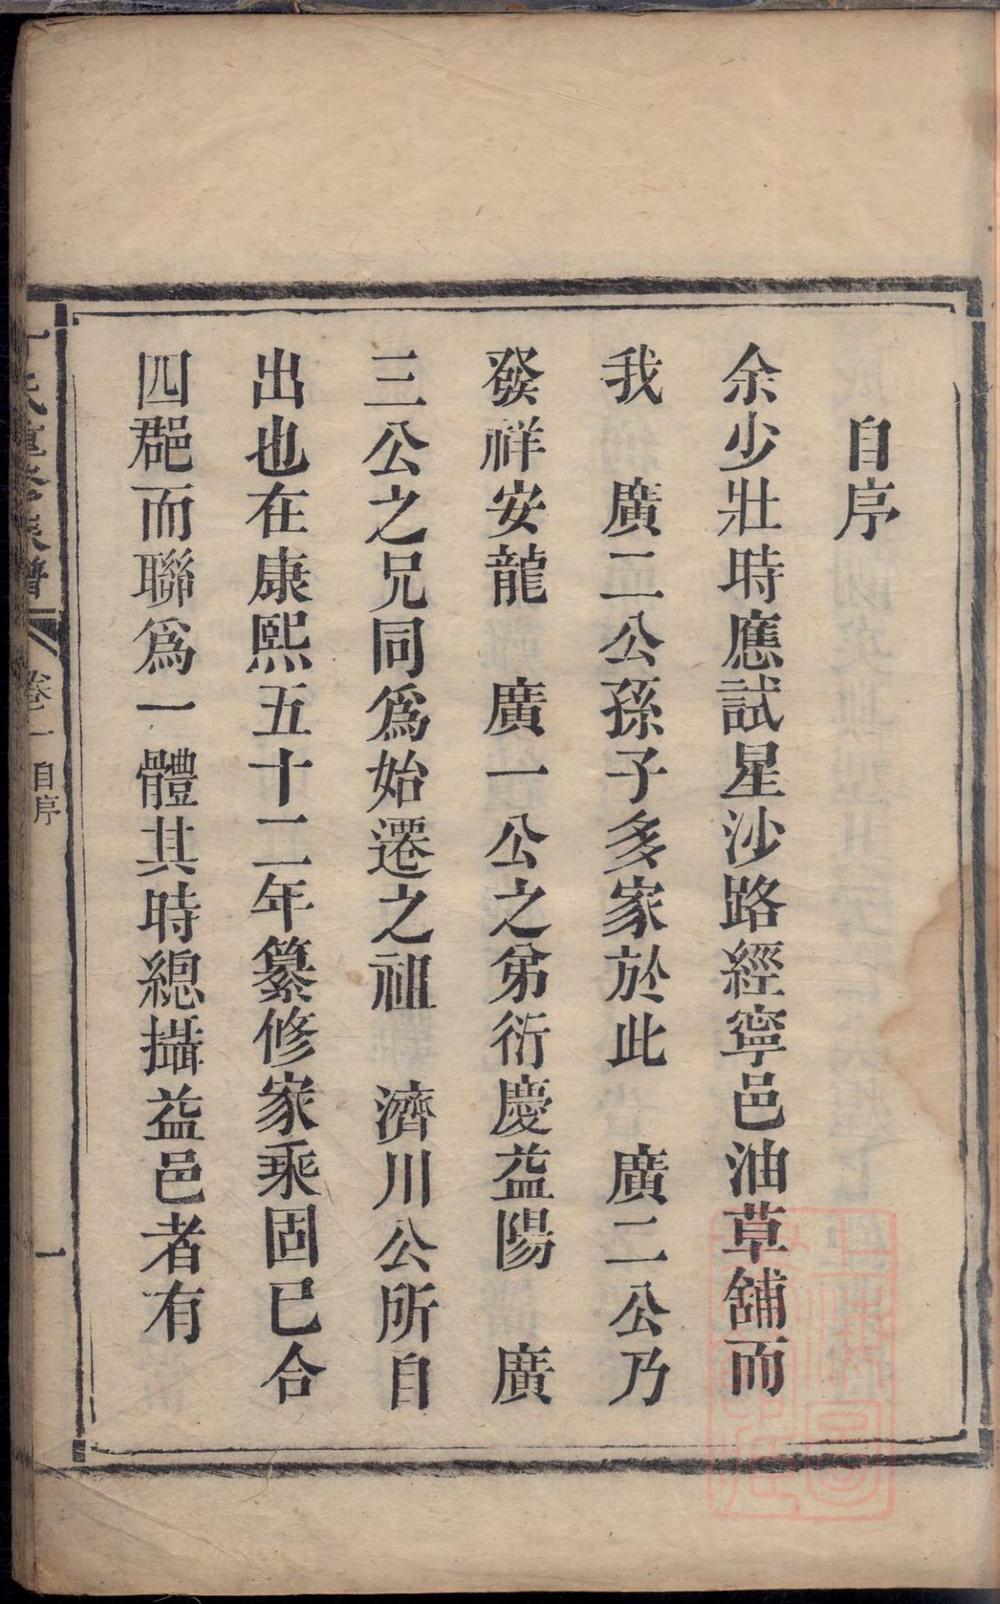 自序
余少壯時應試星沙路經寧邑油草舖而
我　廣二公孫子多家於此　廣二公乃
發祥安龍　廣一公之弟衍慶益陽　廣
三公之兄同爲始遷之祖　濟川公所自
出也在康熙五十二年纂修家乘固已合
四郡而聯爲一體其時總攝益邑者有
氏重修族譜　卷一　自序　一